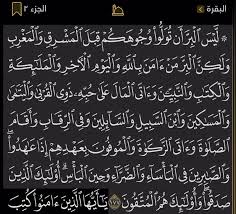 البقرة
الجزء ٢
۞ لَّيْسَ ٱلْبِرَّ أَن تُوَلُّوا۟ وُجُوهَكُمْ قِبَلَ ٱلْمَشْرِقِ وَٱلْمَغْرِبِ
وَلَٰكِنَّ ٱلْبِرَّ مَنْ ءَامَنَ بِٱللَّهِ وَٱلْيَوْمِ ٱلْـَٔاخِرِ وَٱلْمَلَٰٓئِكَةِ
وَٱلْكِتَٰبِ وَٱلنَّبِيِّـۧنَ وَءَاتَى ٱلْمَالَ عَلَىٰ حُبِّهِۦ ذَوِى ٱلْقُرْبَىٰ وَٱلْيَتَٰمَىٰ
وَٱلْمَسَٰكِينَ وَٱبْنَ ٱلسَّبِيلِ وَٱلسَّآئِلِينَ وَفِى ٱلرِّقَابِ وَأَقَامَ
ٱلصَّلَوٰةَ وَءَاتَى ٱلزَّكَوٰةَ وَٱلْمُوفُونَ بِعَهْدِهِمْ إِذَا عَٰهَدُوا۟ ۖ
وَٱلصَّٰبِرِينَ فِى ٱلْبَأْسَآءِ وَٱلضَّرَّآءِ وَحِينَ ٱلْبَأْسِ ۗ أُو۟لَٰٓئِكَ ٱلَّذِينَ
صَدَقُوا۟ ۖ وَأُو۟لَٰٓئِكَ هُمُ ٱلْمُتَّقُونَ ١٧٧ يَٰٓأَيُّهَا ٱلَّذِينَ ءَامَنُوا۟ كُتِبَ